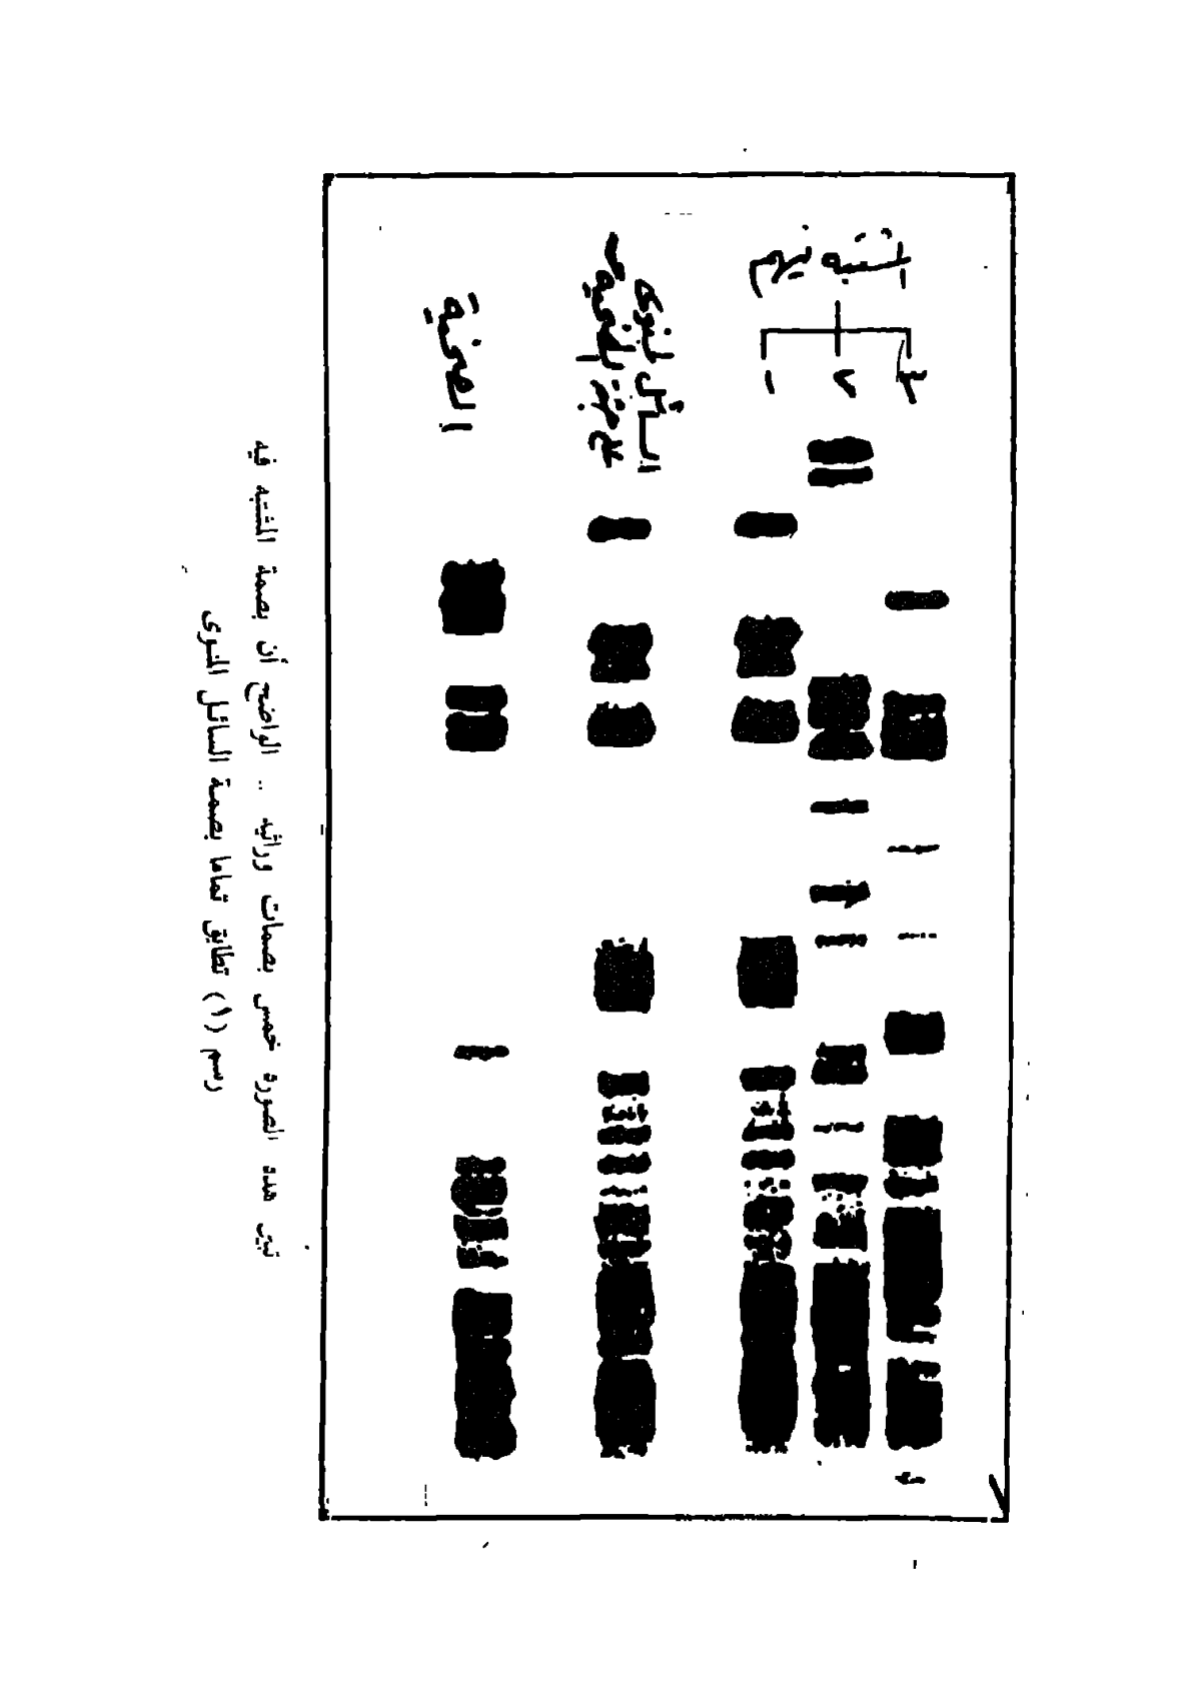 المشتبه فيهم
١
٢
٣
السائل المنوى
على جثة الضحية
الضحية
تبين هذه الصورة خمس بصمات وراثيه .. الواضح أن بصمة المشتبه فيه
رسم (١) تطابق تماما بصمة السائل المنوى